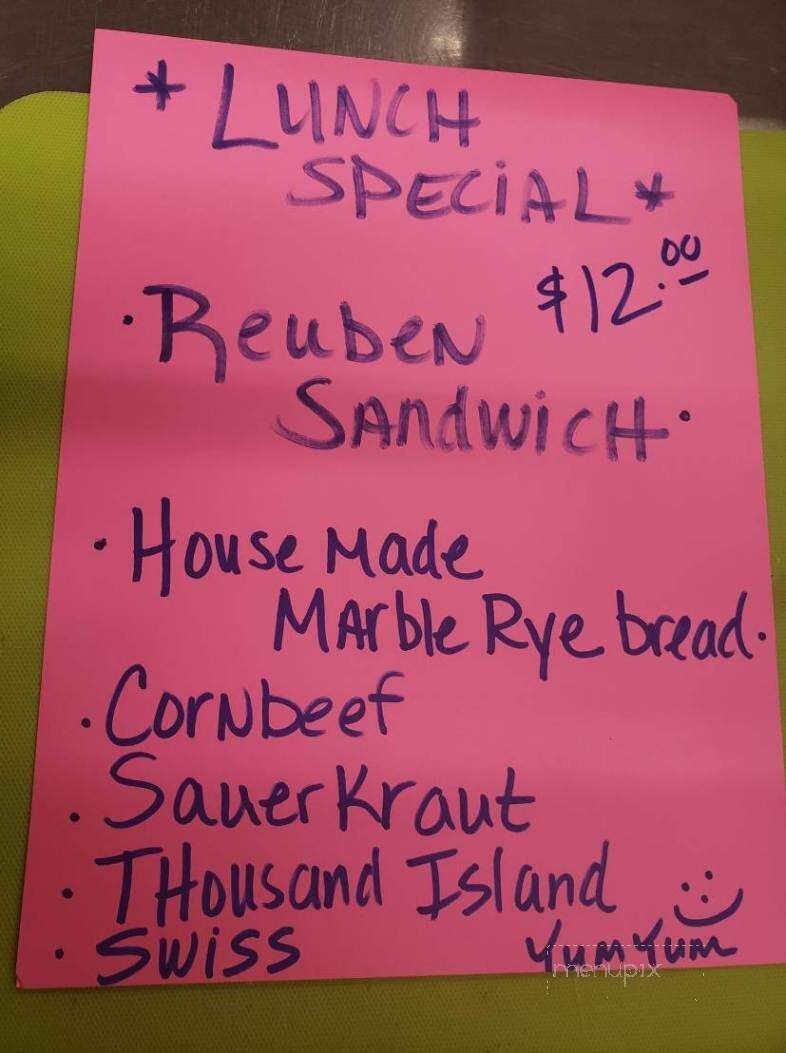 * LUNCH
SPECIAL *
$12.00
· Reuben
SANdwicH ·
· House Made
MArble Rye bread.
· CorNbeef
· SauerKraut
· THousand Island
· Swiss
YumYum
menupix